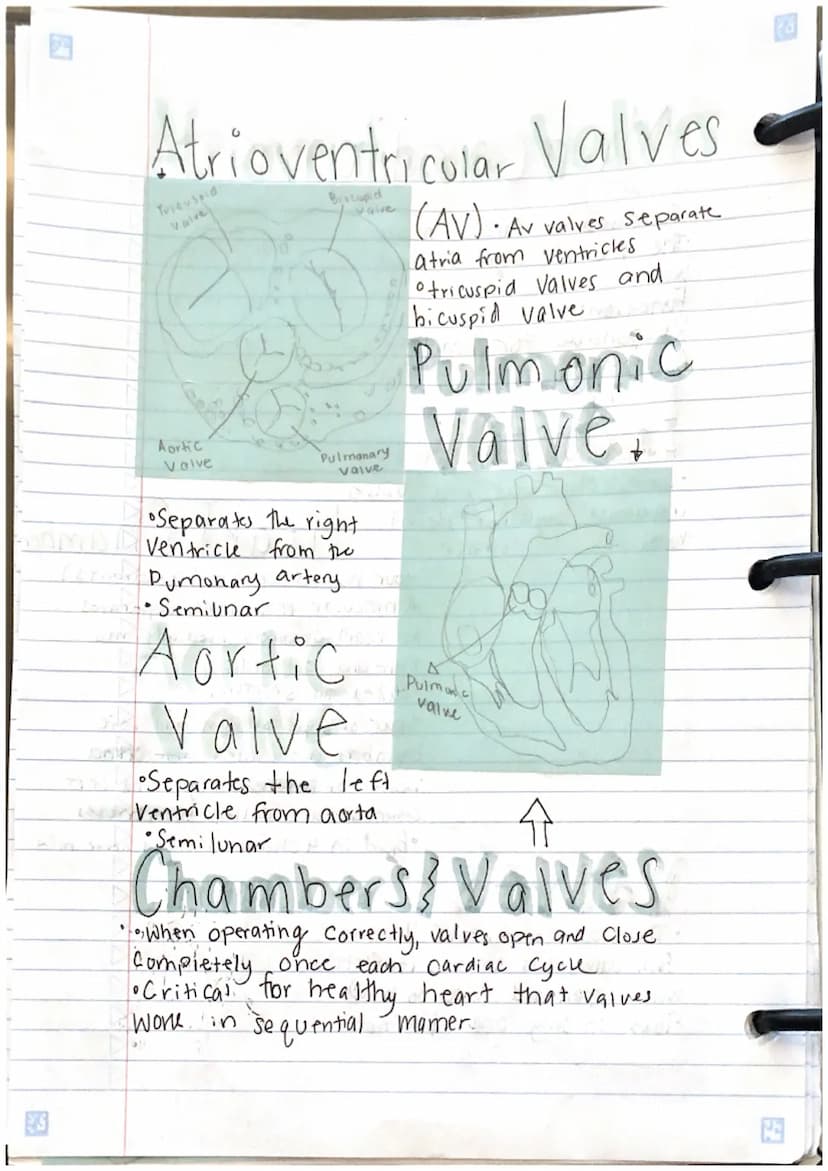 Atrioventricular Valves
Aortic
Valve
Pulmonary
Valve
(AV) • AV valves separate
atria from ventricles
tricuspid valves and
bicuspid valve
Pulmonic
Valve
•Separates the right
ventricle from the
Pumonary artery
•Semilunar
Pulmonic
valve
Aortic
Valve
•Separates the left
ventricle from aorta
•Semilunar
Chambers & Valves
•When operating correctly, valves open and close
completely once each cardiac cycle
•Critical for healthy heart that valves
work in sequential manner.